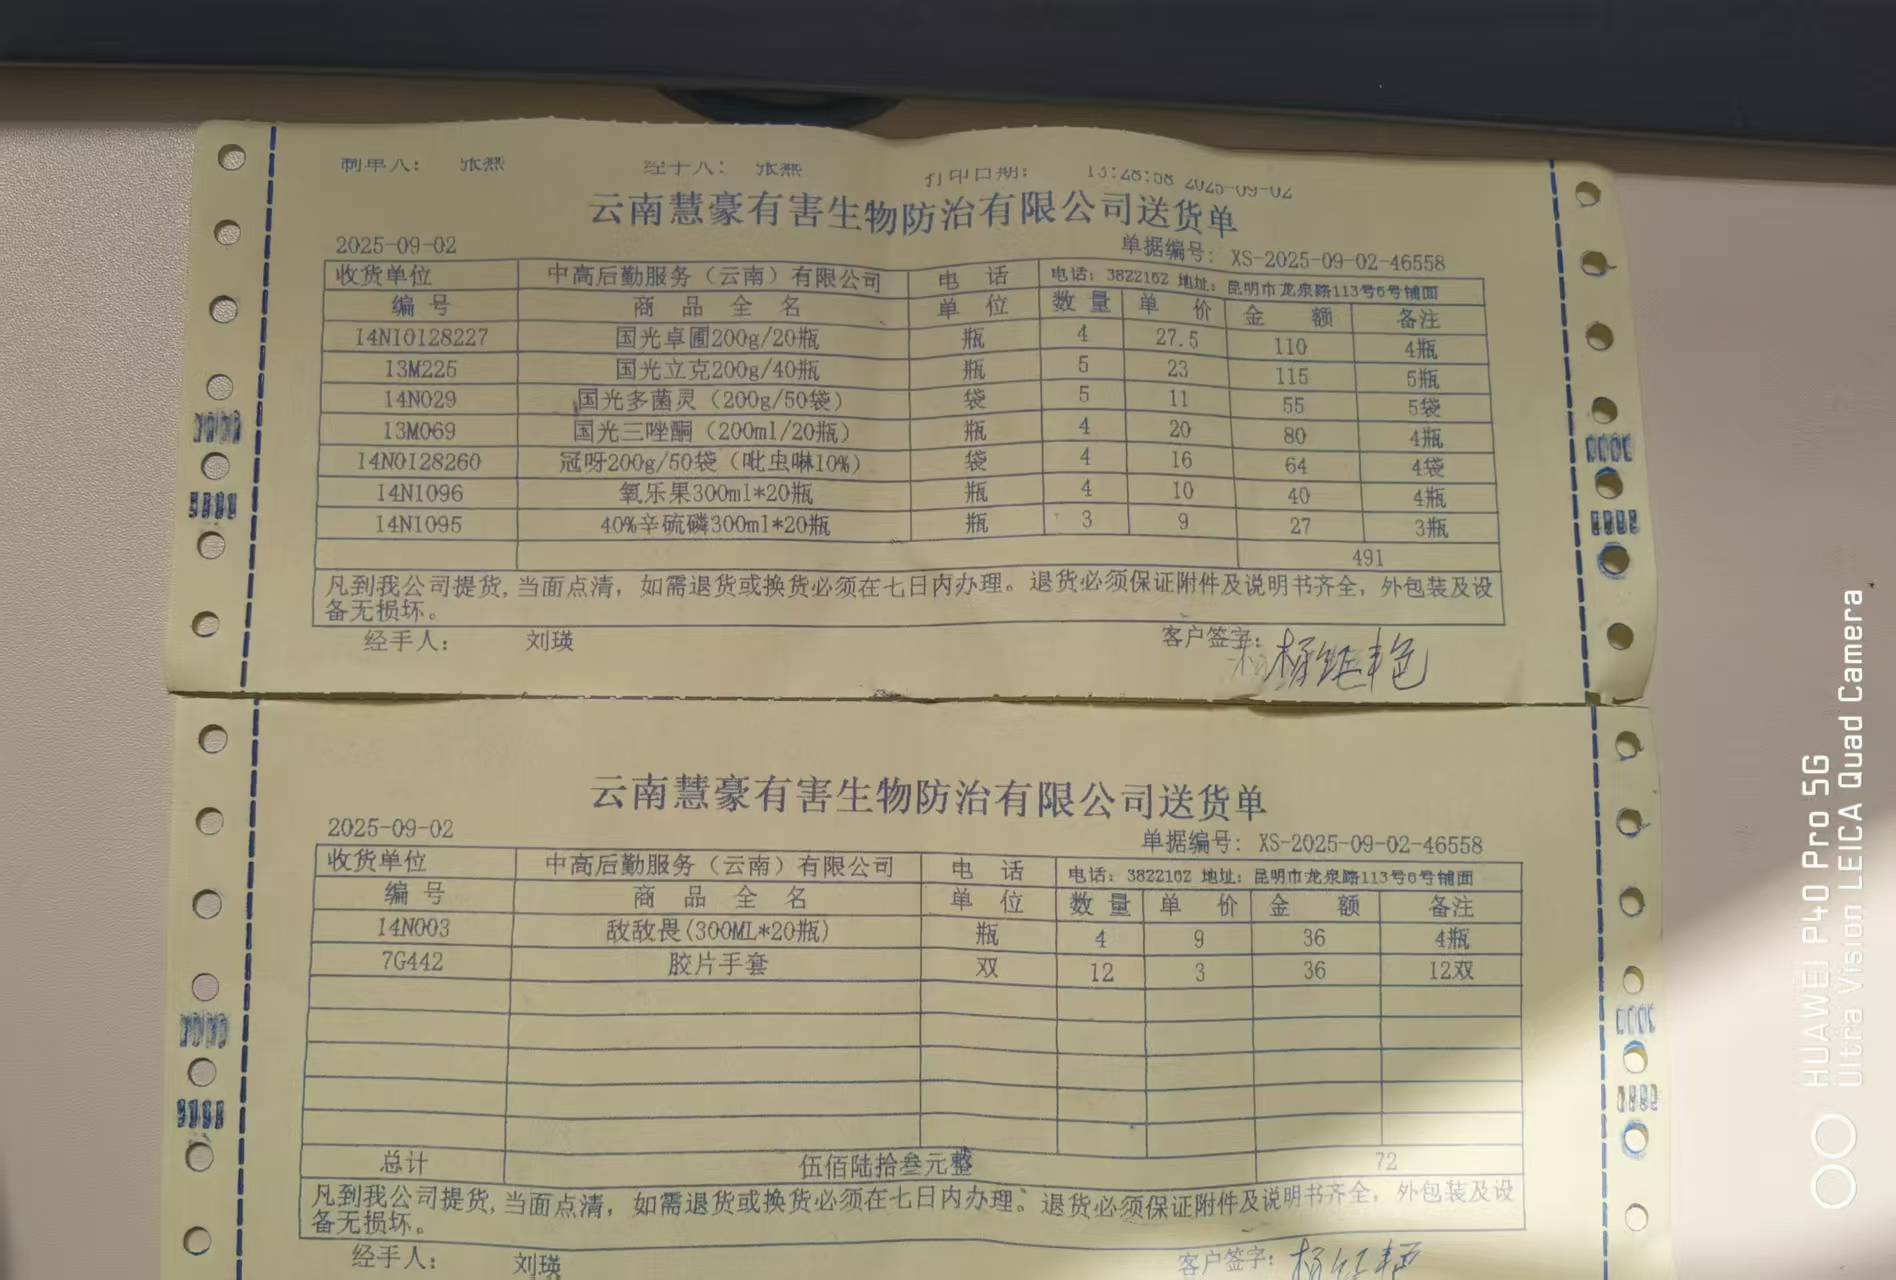 制单人： 张燕 经手人： 张燕 打印日期： 13:28:58 2025-09-02
云南慧豪有害生物防治有限公司送货单
2025-09-02 单据编号：XS-2025-09-02-46558
收货单位 中高后勤服务（云南）有限公司 电 话 电话：3822162 地址：昆明市龙泉路113号6号铺面
编 号 商 品 全 名 单 位 数 量 单 价 金 额 备注
14N10128227 国光卓圃200g/20瓶 瓶 4 27.5 110 4瓶
13M225 国光立克200g/40瓶 瓶 5 23 115 5瓶
14N029 国光多菌灵（200g/50袋） 袋 5 11 55 5袋
13M069 国光三唑酮（200ml/20瓶） 瓶 4 20 80 4瓶
14N0128260 冠呀200g/50袋（吡虫啉10%） 袋 4 16 64 4袋
14N1096 氧乐果300ml*20瓶 瓶 4 10 40 4瓶
14N1095 40%辛硫磷300ml*20瓶 瓶 3 9 27 3瓶
491
凡到我公司提货,当面点清，如需退货或换货必须在七日内办理。退货必须保证附件及说明书齐全，外包装及设
备无损坏。
经手人： 刘瑛 客户签字：
云南慧豪有害生物防治有限公司送货单
2025-09-02 单据编号：XS-2025-09-02-46558
收货单位 中高后勤服务（云南）有限公司 电 话 电话：3822162 地址：昆明市龙泉路113号6号铺面
编 号 商 品 全 名 单 位 数 量 单 价 金 额 备注
14N003 敌敌畏(300ML*20瓶) 瓶 4 9 36 4瓶
7G442 胶片手套 双 12 3 36 12双
总计 伍佰陆拾叁元整 72
凡到我公司提货,当面点清，如需退货或换货必须在七日内办理。退货必须保证附件及说明书齐全，外包装及设
备无损坏。
经手人： 刘瑛 客户签字：
HUAWEI P40 Pro 5G
Ultra Vision LEICA Quad Camera